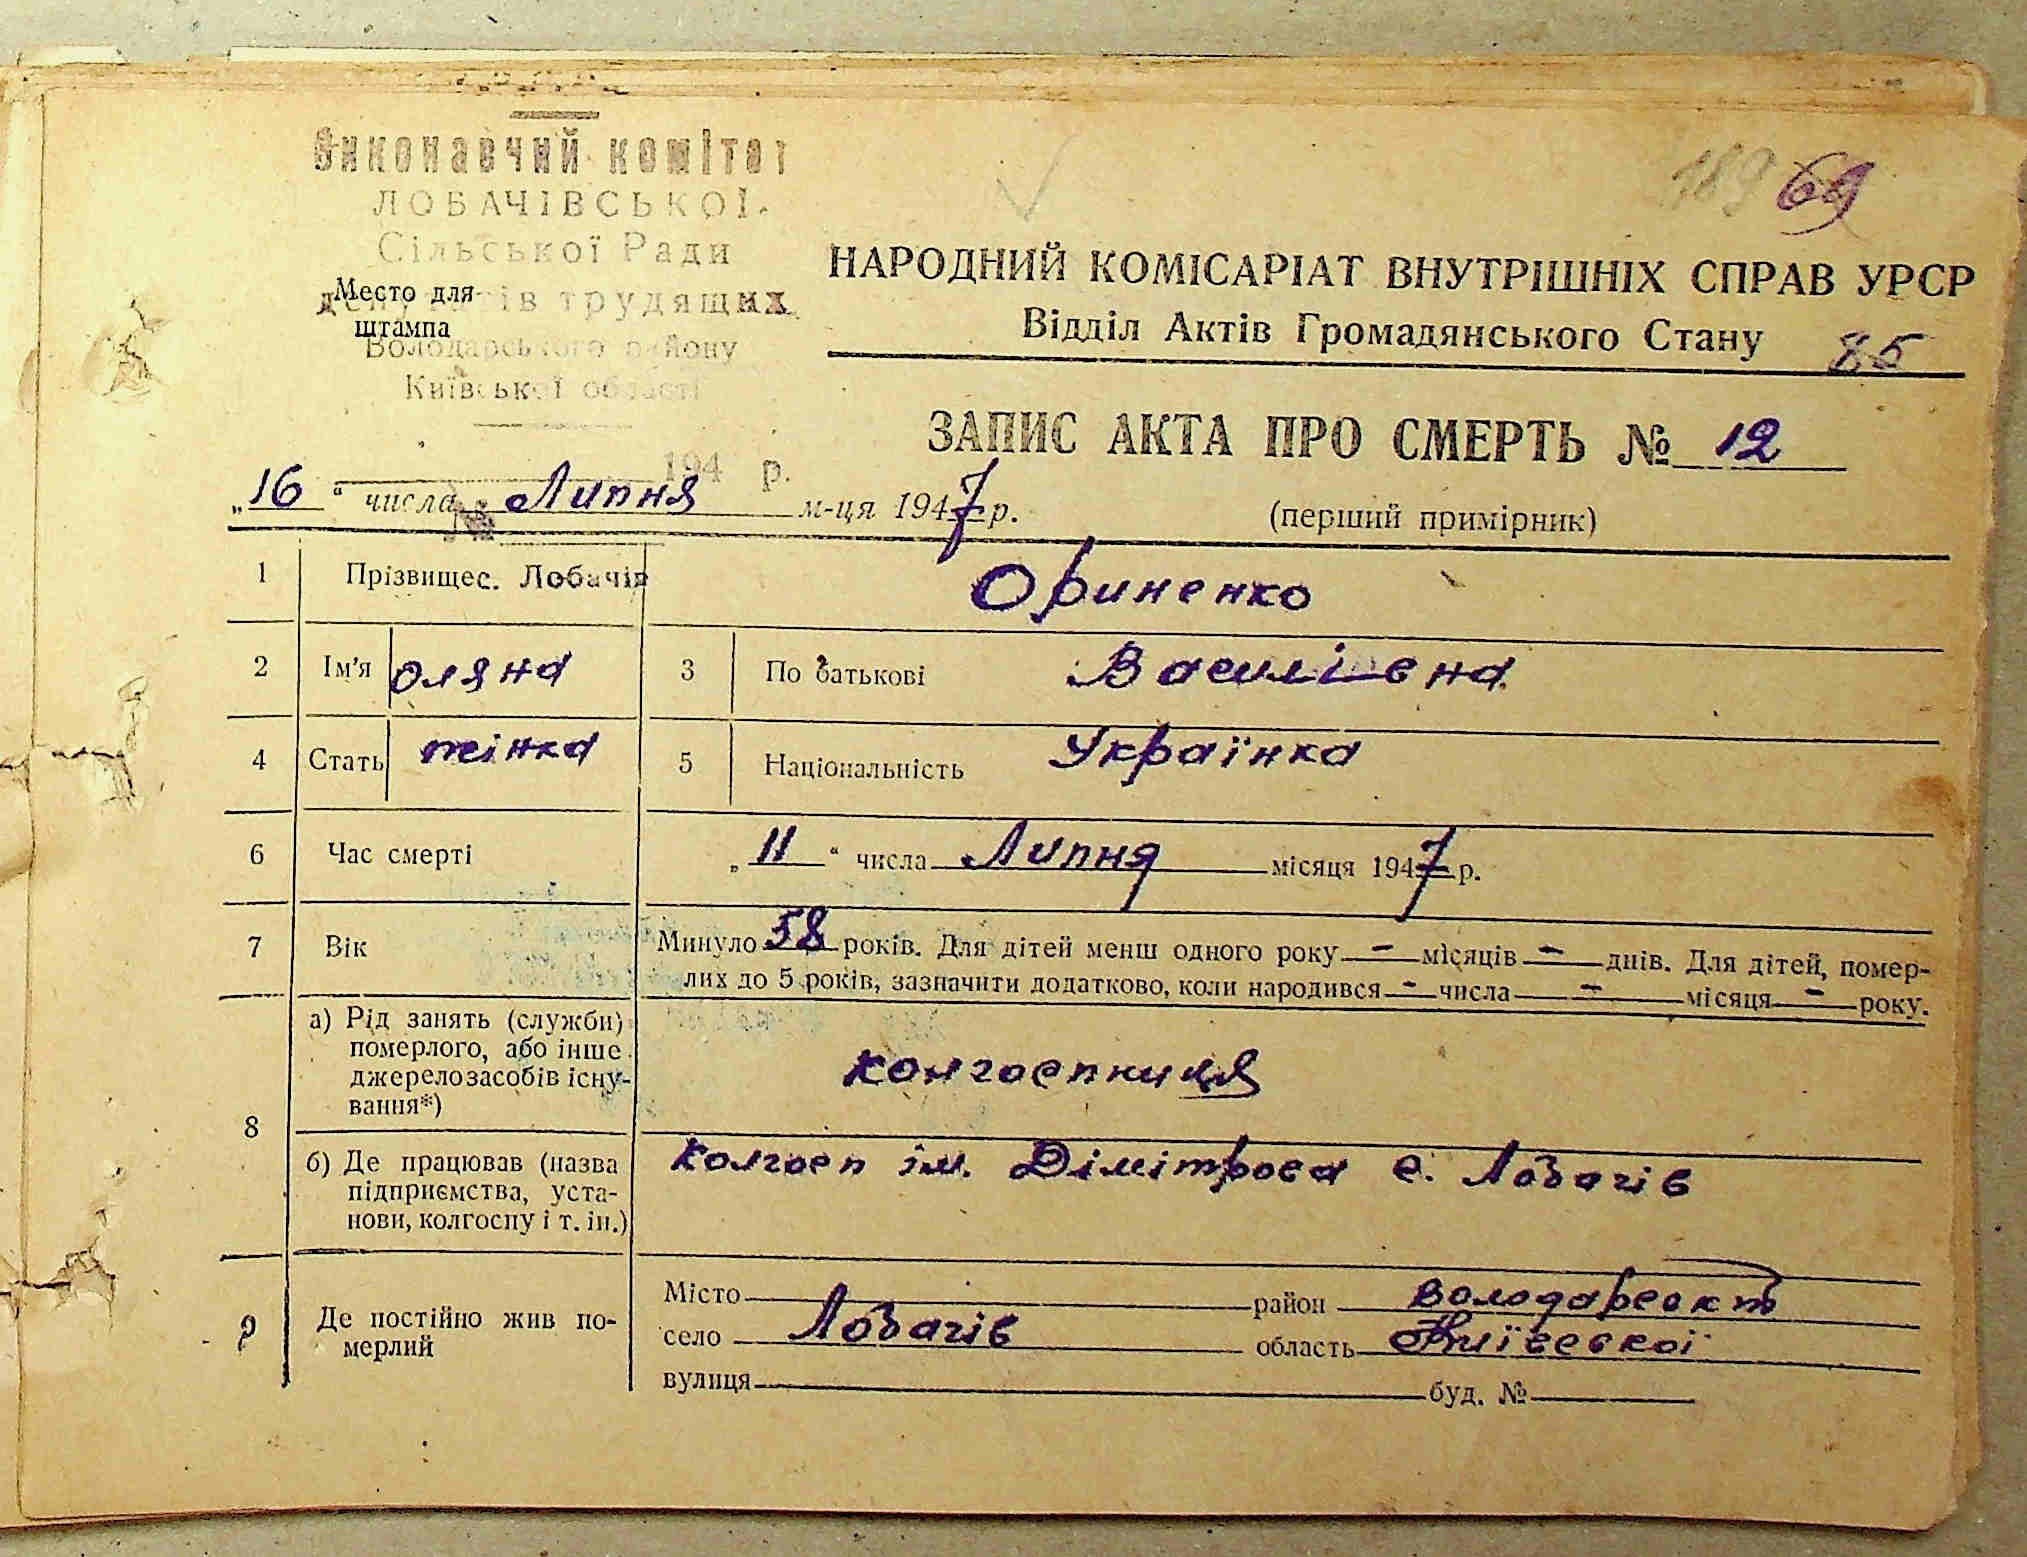 Виконавчий комітет
ЛОБАЧІВСЬКОЇ
Сільської Ради
депутатів трудящих
Место для
штампа
Володарського району
Київської області
194 р.
№
с. Лобачів
189 69
НАРОДНИЙ КОМІСАРІАТ ВНУТРІШНІХ СПРАВ УРСР
Відділ Актів Громадянського Стану 85
ЗАПИС АКТА ПРО СМЕРТЬ № 12
„16“ числа Липня м-ця 1947 р.
(перший примірник)
1 Прізвище Ориненко
2 Ім'я Оляна 3 По батькові Василівна
4 Стать жінка 5 Національність Українка
6 Час смерті „11“ числа Липня місяця 1947 р.
7 Вік Минуло 58 років. Для дітей менш одного року — місяців — днів. Для дітей, помер-
лих до 5 років, зазначити додатково, коли народився — числа — місяця — року.
8 а) Рід занять (служби)
померлого, або інше
джерело засобів існу-
вання*)
колгоспниця
б) Де працював (назва
підприємства, уста-
нови, колгоспу і т. ін.)
Колгосп ім. Дімітрова с. Лобачів
9 Де постійно жив по-
мерлий
Місто район Володарськ
село Лобачів область Київської
вулиця буд. №